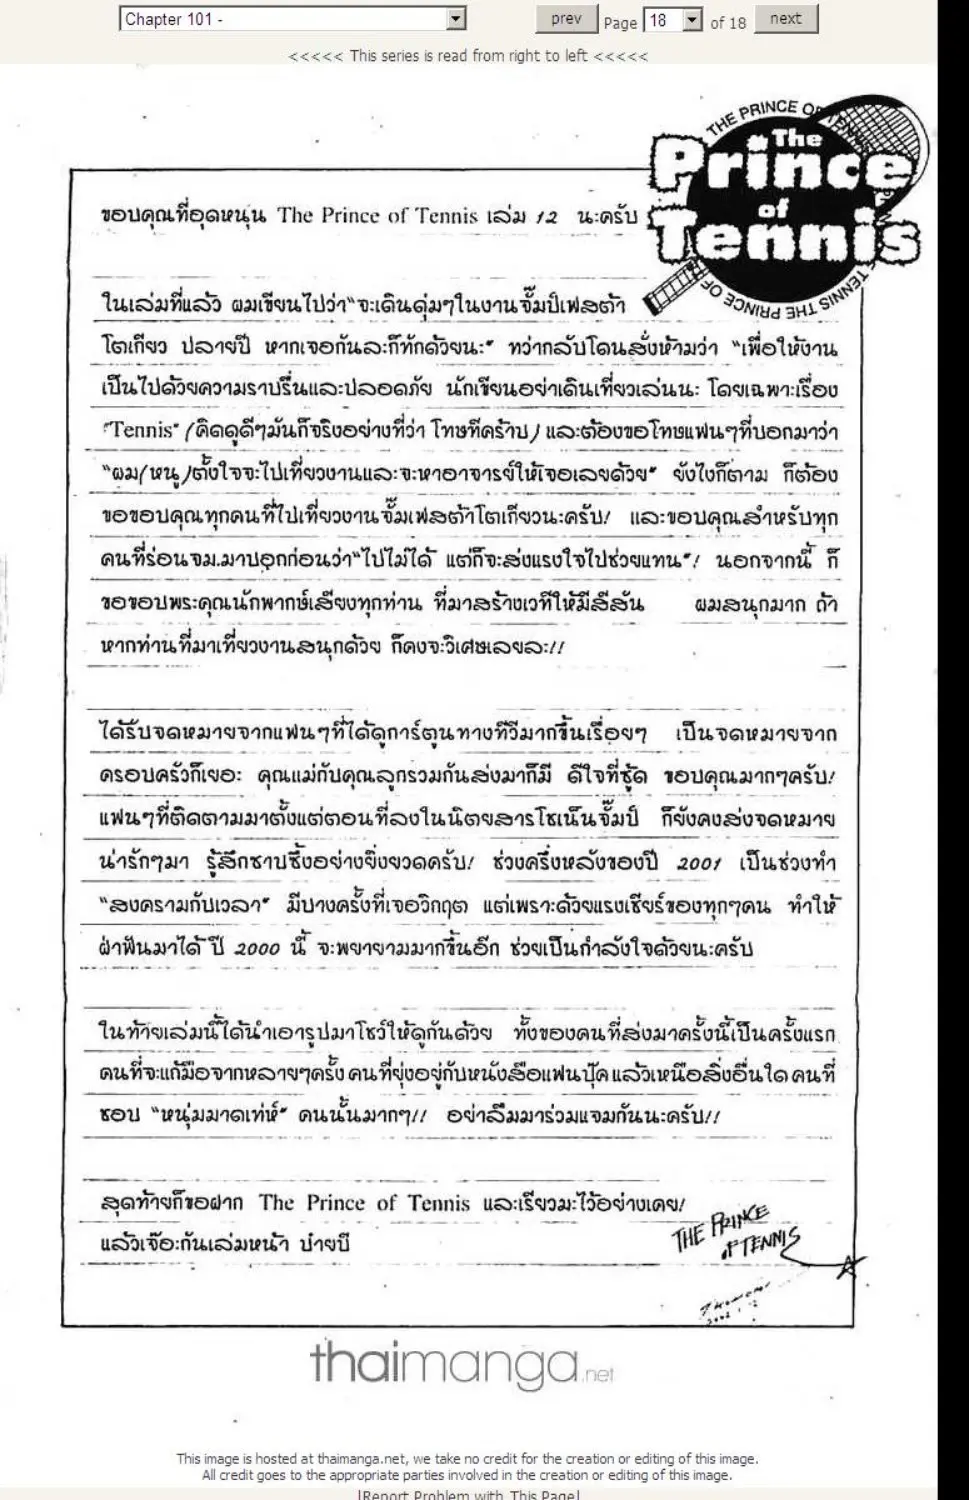 Chapter 101 -
prev Page 18 of 18 next
<<<<< This series is read from right to left <<<<<
THE PRINCE OF TENNIS THE PRINCE OF
The
Prince
of
Tennis
ขอบคุณที่อุดหนุน The Prince of Tennis เล่ม 12 นะครับ
ในเล่มที่แล้ว ผมเขียนไปว่า"จะเดินดุ่มๆในงานจั๊มป์เฟสต้า
โตเกียว ปลายปี หากเจอกันละก็ทักด้วยนะ" ทว่ากลับโดนสั่งห้ามว่า "เพื่อให้งาน
เป็นไปด้วยความราบรื่นและปลอดภัย นักเขียนอย่าเดินเที่ยวเล่นนะ โดยเฉพาะเรื่อง
"Tennis" (คิดดูดีๆมันก็จริงอย่างที่ว่า โทษทีคร้าบ) และต้องขอโทษแฟนๆที่บอกมาว่า
"ผม(หนู)ตั้งใจจะไปเที่ยวงานและจะหาอาจารย์ให้เจอเลยด้วย" ยังไงก็ตาม ก็ต้อง
ขอขอบคุณทุกคนที่ไปเที่ยวงานจั๊มเฟสต้าโตเกียวนะครับ! และขอบคุณสำหรับทุก
คนที่ร่อนจม.มาบอกก่อนว่า"ไปไม่ได้ แต่ก็จะส่งแรงใจไปช่วยแทน"! นอกจากนี้ ก็
ขอขอบพระคุณนักพากษ์เสียงทุกท่าน ที่มาสร้างเวทีให้มีสีสัน ผมสนุกมาก ถ้า
หากท่านที่มาเที่ยวงานสนุกด้วย ก็คงจะวิเศษเลยละ!!
ได้รับจดหมายจากแฟนๆที่ได้ดูการ์ตูนทางทีวีมากขึ้นเรื่อยๆ เป็นจดหมายจาก
ครอบครัวก็เยอะ คุณแม่กับคุณลูกรวมกันส่งมาก็มี ดีใจที่ซู้ด ขอบคุณมากๆครับ!
แฟนๆที่ติดตามมาตั้งแต่ตอนที่ลงในนิตยสารโชเน็นจั๊มป์ ก็ยังคงส่งจดหมาย
น่ารักๆมา รู้สึกซาบซึ้งอย่างยิ่งยวดครับ! ช่วงครึ่งหลังของปี 2001 เป็นช่วงทำ
"สงครามกับเวลา" มีบางครั้งที่เจอวิกฤต แต่เพราะด้วยแรงเชียร์ของทุกๆคน ทำให้
ฝ่าฟันมาได้ ปี 2000 นี้ จะพยายามมากขึ้นอีก ช่วยเป็นกำลังใจด้วยนะครับ
ในท้ายเล่มนี้ได้นำเอารูปมาโชว์ให้ดูกันด้วย ทั้งของคนที่ส่งมาครั้งนี้เป็นครั้งแรก
คนที่จะแก้มือจากหลายๆครั้ง คนที่ยุ่งอยู่กับหนังสือแฟนบุ๊ค แล้วเหนือสิ่งอื่นใด คนที่
ชอบ "หนุ่มมาดเท่ห์" คนนั้นมากๆ!! อย่าลืมมาร่วมแจมกันนะครับ!!
สุดท้ายก็ขอฝาก The Prince of Tennis และเรียวมะไว้อย่างเคย!
แล้วเจ๊อะกันเล่มหน้า บ๋ายบี
THE PRINCE
OF TENNIS
thaimanga.net
This image is hosted at thaimanga.net, we take no credit for the creation or editing of this image.
All credit goes to the appropriate parties involved in the creation or editing of this image.
[Report Problem with This Page]